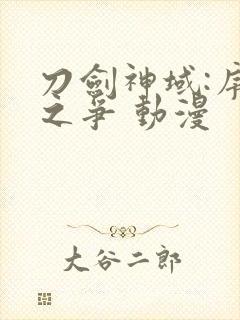 刀劍神域:序
之爭 動漫
大谷二郎